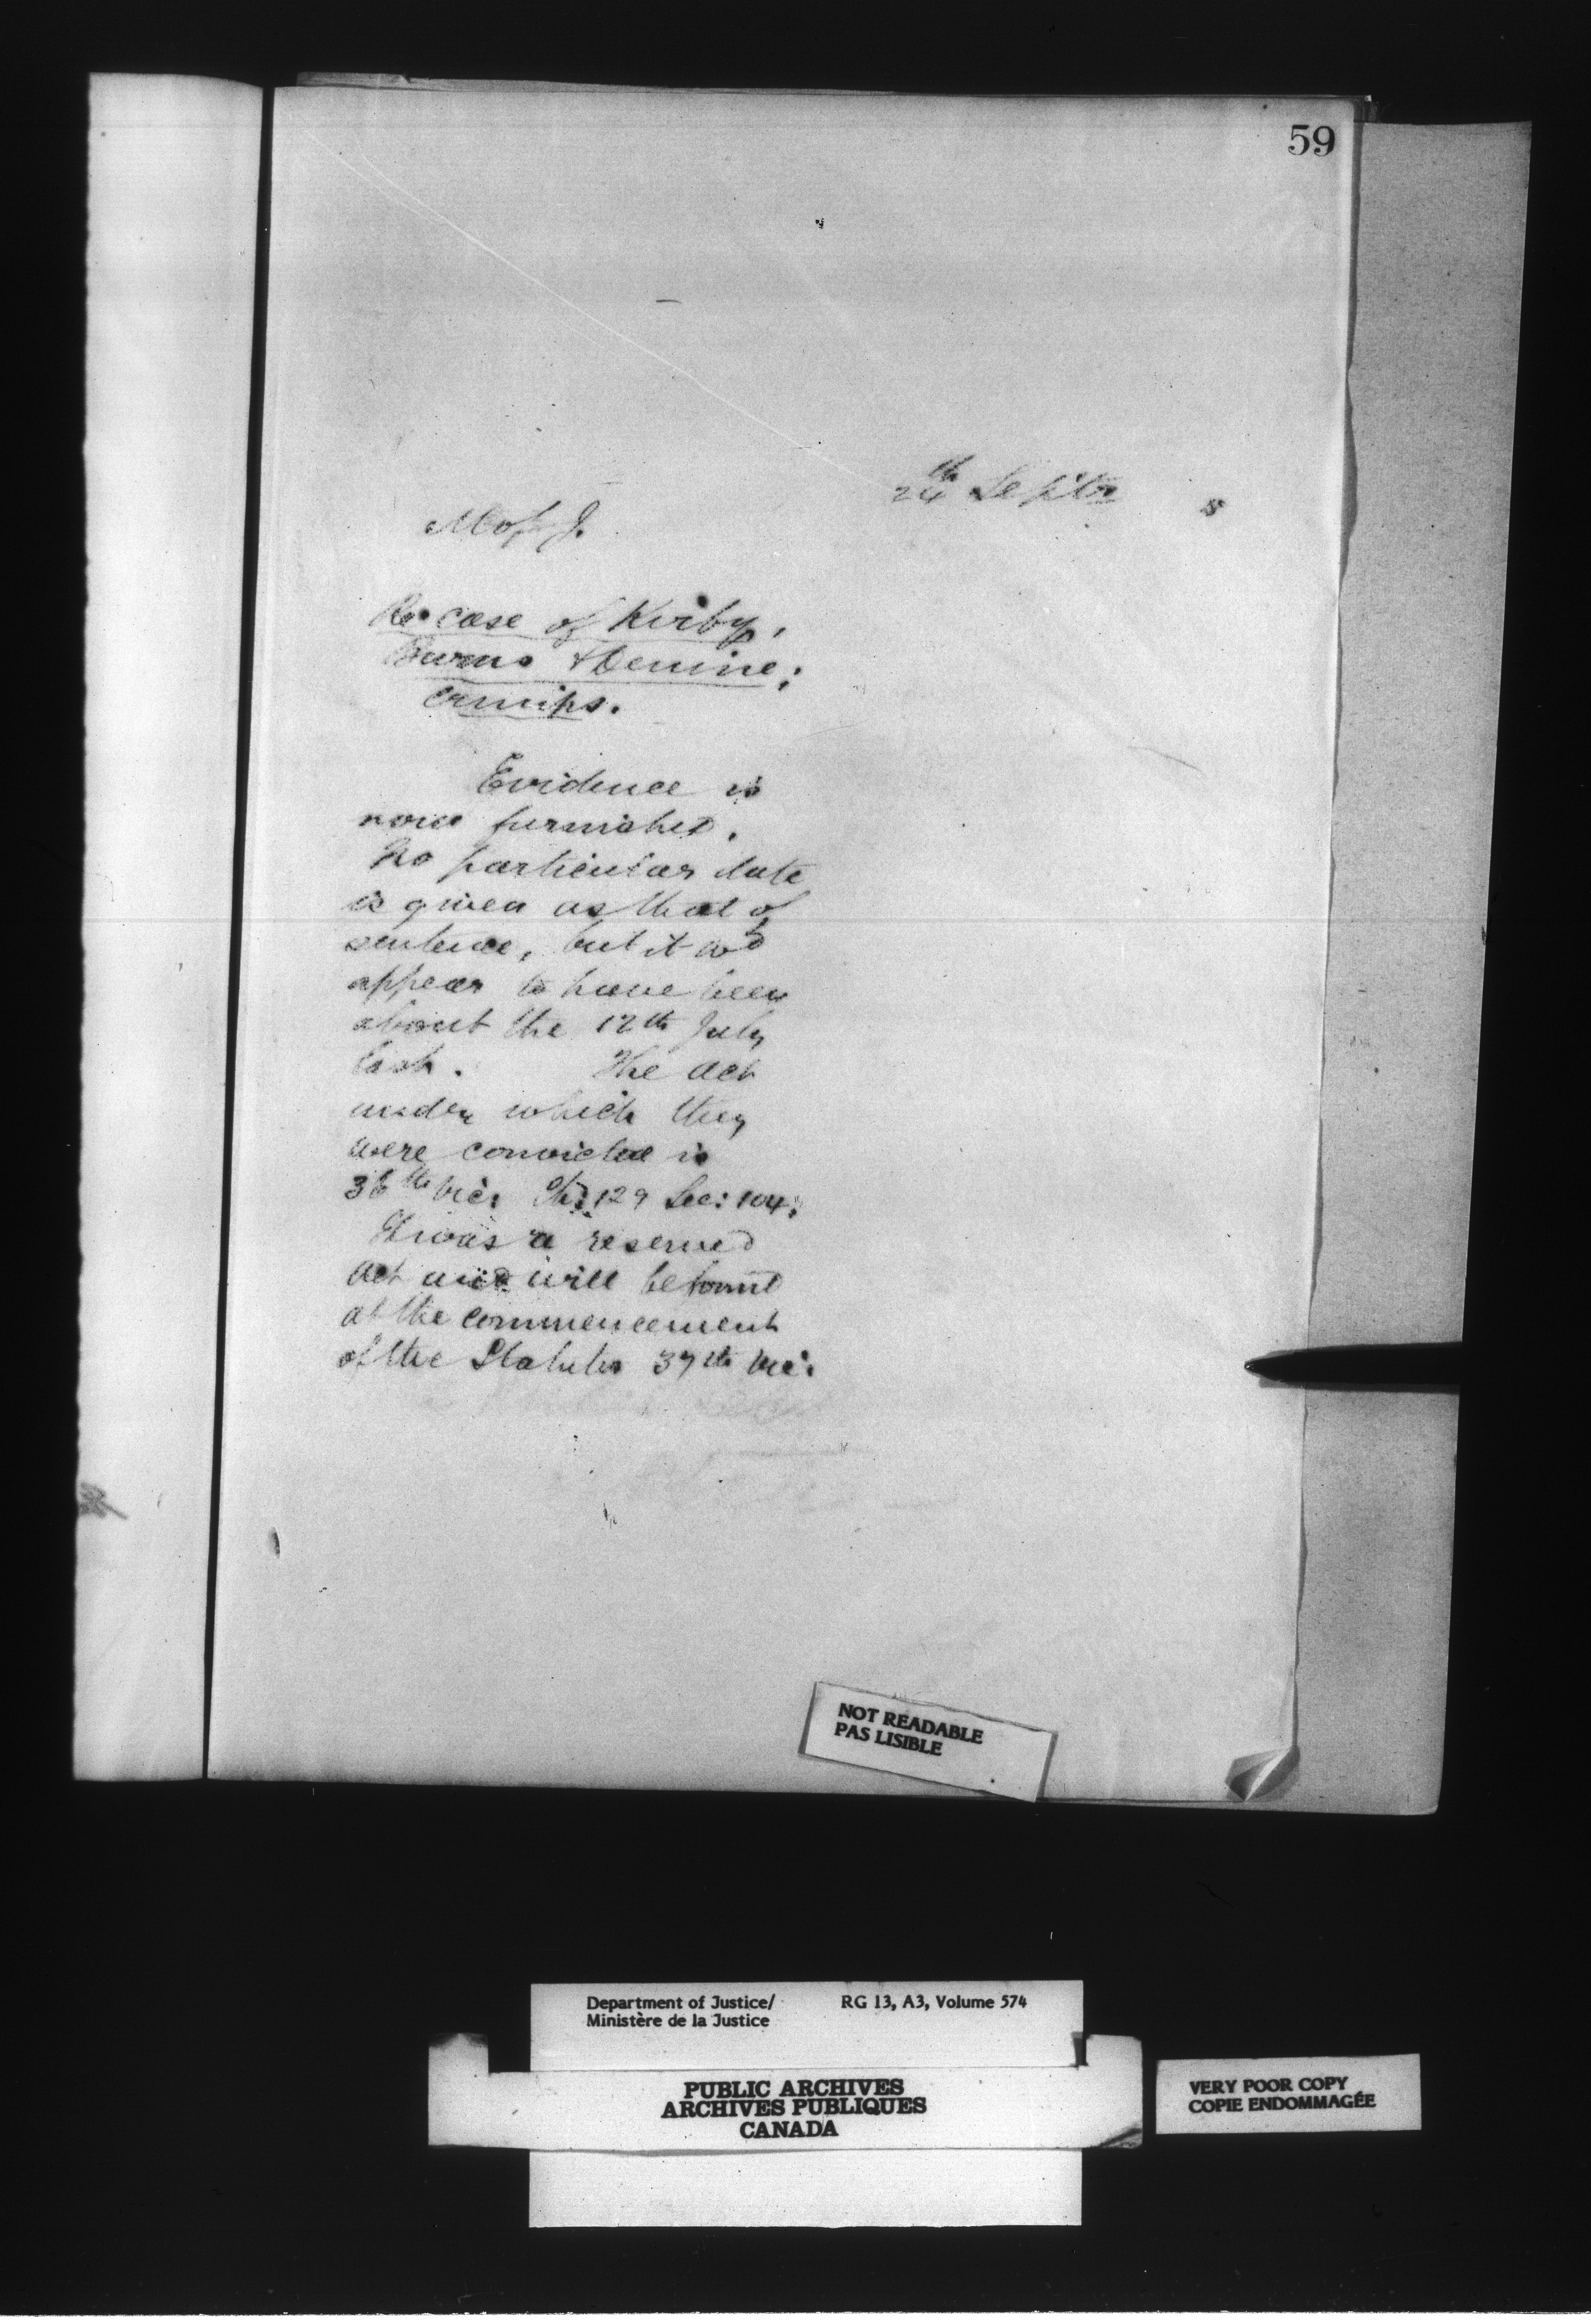 59
24th Septr 5
M of J.
Re case of Kirby,
Burns & Devine;
crimps.
Evidence is
now furnished.
No particular date
is given as that of
sentence, but it wd
appear to have been
about the 12th July
last. The act
under which they
were convicted is
36th Vic: Ch: 129 Sec: 104;
It was a reserved
act and will be found
at the commencement
of the Statutes 37th Vic:
NOT READABLE
PAS LISIBLE
Department of Justice/ RG 13, A3, Volume 574
Ministère de la Justice
PUBLIC ARCHIVES
ARCHIVES PUBLIQUES
CANADA
VERY POOR COPY
COPIE ENDOMMAGÉE